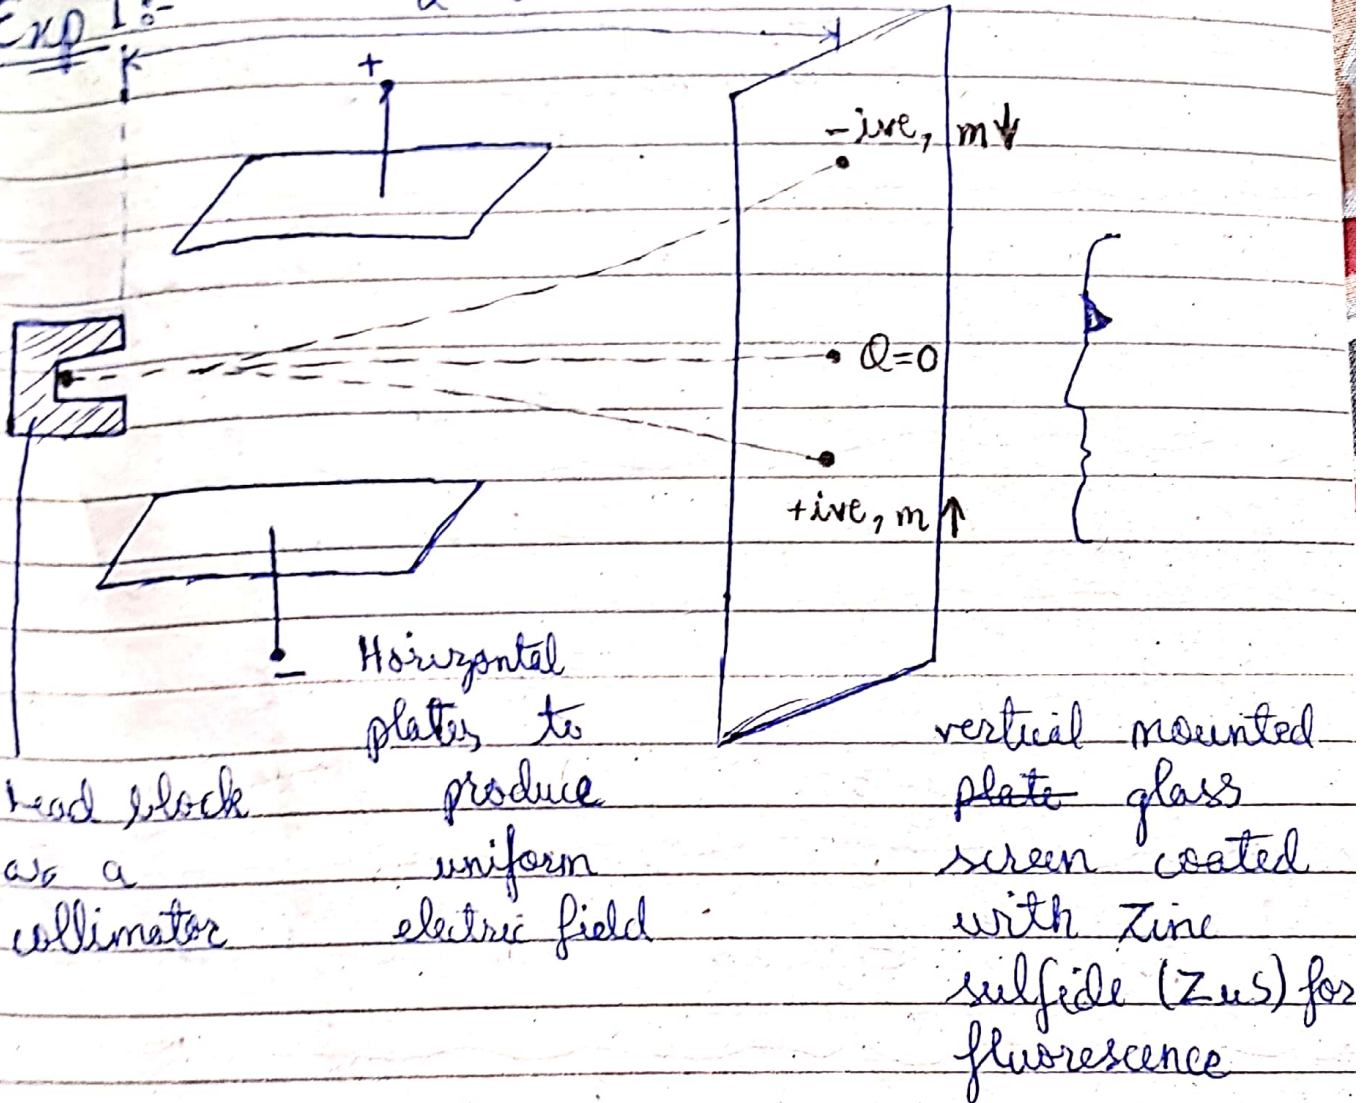 Exp 1:-
+
-ive, m↓
Q=0
+ive, m↑
-
Horizontal
plates to
produce
uniform
electric field
Lead block
as a
collimator
vertical mounted
plate glass
screen coated
with Zinc
sulfide (ZnS) for
fluorescence